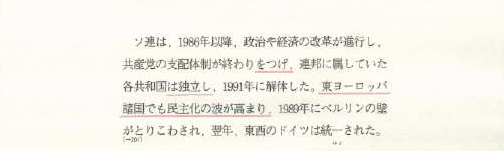 ソ連は，1986年以降，政治や経済の改革が進行し，
共産党の支配体制が終わりをつげ，連邦に属していた
各共和国は独立し，1991年に解体した。東ヨーロッパ
諸国でも民主化の波が高まり，1989年にベルリンの壁
がとりこわされ，翌年，東西のドイツは統一された。
(→201)